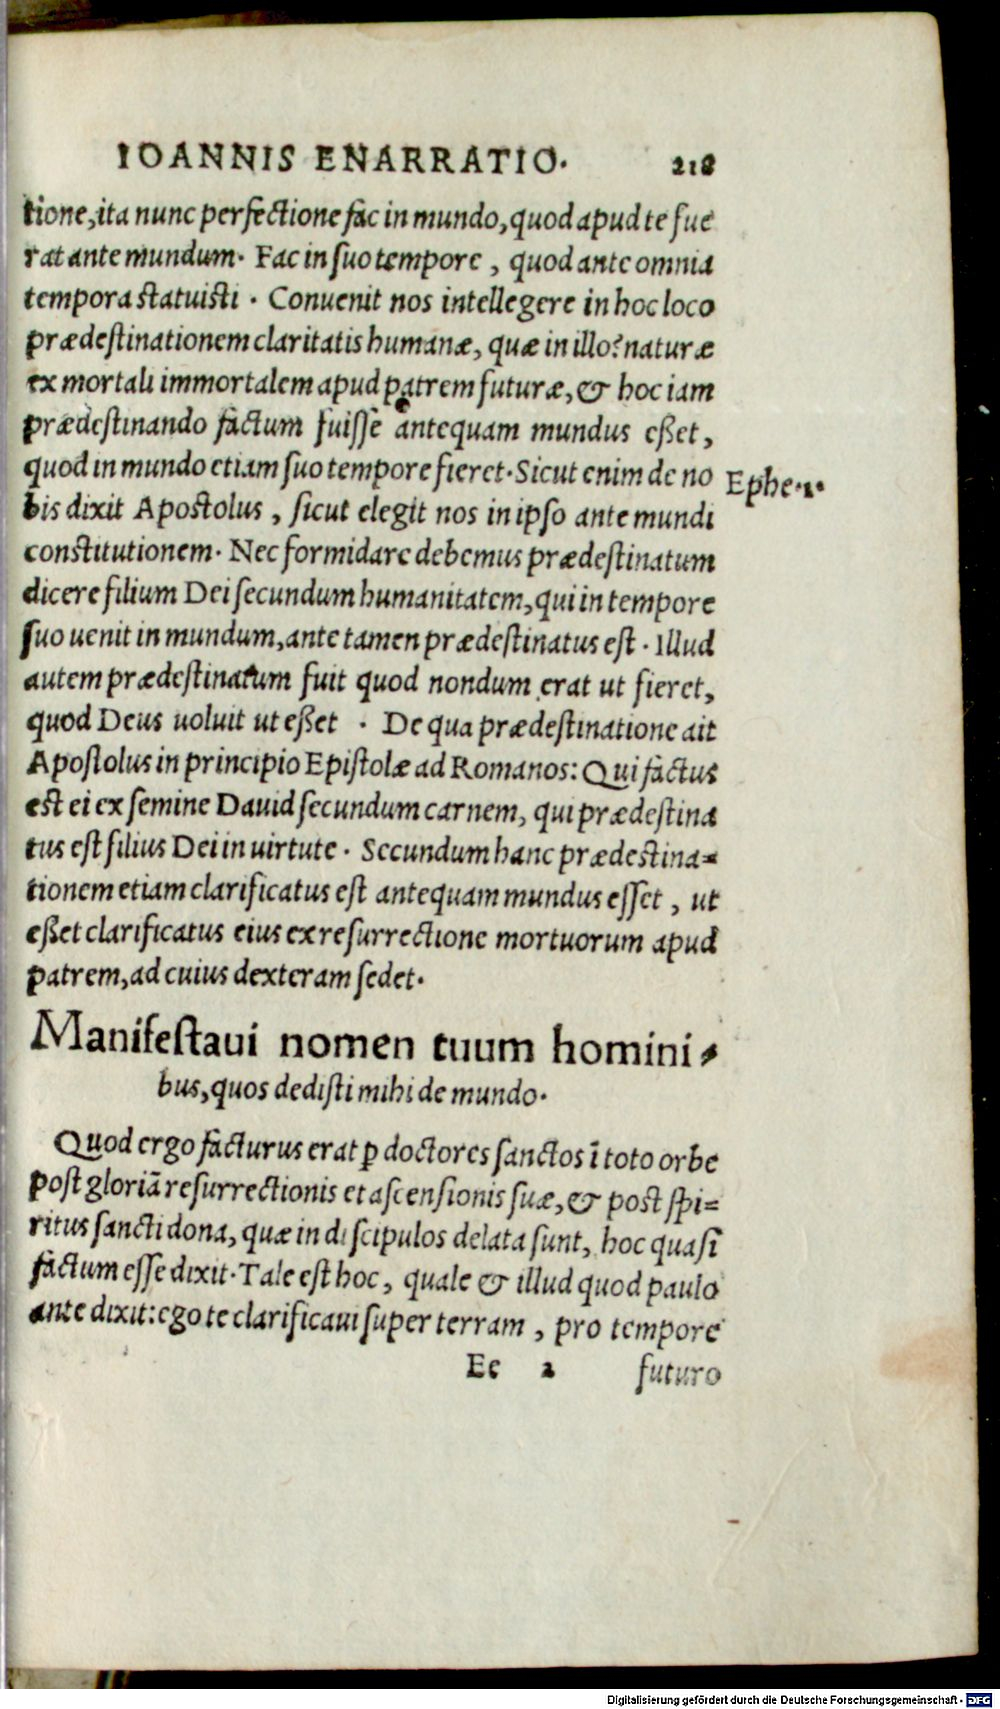 IOANNIS ENARRATIO. 218
tione, ita nunc perfectione fac in mundo, quod apud te fue
rat ante mundum. Fac in suo tempore, quod ante omnia
tempora statuisti. Conuenit nos intellegere in hoc loco
prædestinationem claritatis humanæ, quæ in illo? naturæ
ex mortali immortalem apud patrem futuræ, & hoc iam
prædestinando factum fuisse antequam mundus eßet,
quod in mundo etiam suo tempore fieret. Sicut enim de no
Ephe.1.
bis dixit Apostolus, sicut elegit nos in ipso ante mundi
constitutionem. Nec formidare debemus prædestinatum
dicere filium Dei secundum humanitatem, qui in tempore
suo uenit in mundum, ante tamen prædestinatus est. Illud
autem prædestinatum fuit quod nondum erat ut fieret,
quod Deus uoluit ut eßet. De qua prædestinatione ait
Apostolus in principio Epistolæ ad Romanos: Qui factus
est ei ex semine Dauid secundum carnem, qui prædestina
tus est filius Dei in uirtute. Secundum hanc prædestina=
tionem etiam clarificatus est antequam mundus esset, ut
eßet clarificatus eius ex resurrectione mortuorum apud
patrem, ad cuius dexteram sedet.
Manifestaui nomen tuum homini=
bus, quos dedisti mihi de mundo.
Quod ergo facturus erat ꝑ doctores sanctos ī toto orbe
post gloriā resurrectionis et ascensionis suæ, & post spi=
ritus sancti dona, quæ in discipulos delata sunt, hoc quasi
factum esse dixit. Tale est hoc, quale & illud quod paulo
ante dixit: ego te clarificaui super terram, pro tempore
Ee 2 futuro
Digitalisierung gefördert durch die Deutsche Forschungsgemeinschaft - DFG